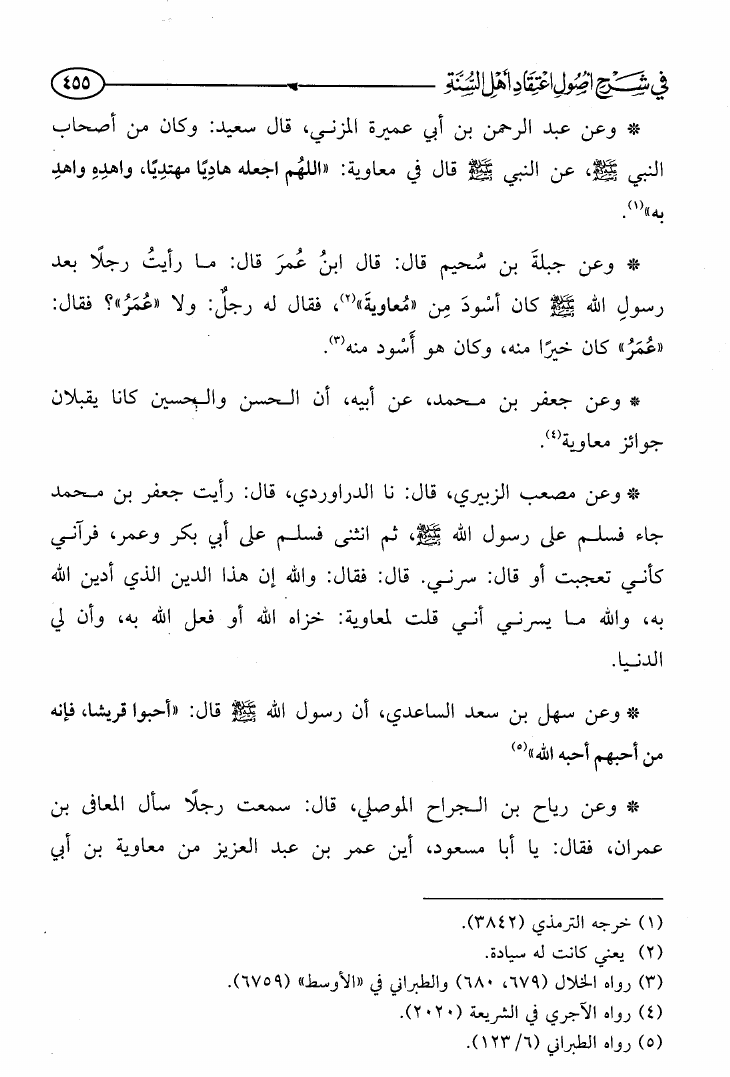 في شرح أصول اعتقاد أهل السنة ٤٥٥
* وعن عبد الرحمن بن أبي عميرة المزني، قال سعيد: وكان من أصحاب
النبي ﷺ، عن النبي ﷺ قال في معاوية: «اللهُم اجعله هاديًا مهتديًا، واهدِهِ واهدِ
به»(١).
* وعن جبلةَ بن سُحيم قال: قال ابنُ عُمرَ قال: ما رأيتُ رجلًا بعد
رسولِ الله ﷺ كان أسْودَ مِن «مُعاويةَ»(٢)، فقال له رجلٌ: ولا «عُمَرُ»؟ فقال:
«عُمَرُ» كان خيرًا منه، وكان هو أَسْود منه(٣).
* وعن جعفر بن محمد، عن أبيه، أن الحسن والحسين كانا يقبلان
جوائز معاوية(٤).
* وعن مصعب الزبيري، قال: نا الدراوردي، قال: رأيت جعفر بن محمد
جاء فسلم على رسول الله ﷺ، ثم انثنى فسلم على أبي بكر وعمر، فرآني
كأني تعجبت أو قال: سرني. قال: فقال: والله إن هذا الدين الذي أدين الله
به، والله ما يسرني أني قلت لمعاوية: خزاه الله أو فعل الله به، وأن لي
الدنيا.
* وعن سهل بن سعد الساعدي، أن رسول الله ﷺ قال: «أحبوا قريشا، فإنه
من أحبهم أحبه الله»(٥)
* وعن رياح بن الجراح الموصلي، قال: سمعت رجلًا سأل المعافى بن
عمران، فقال: يا أبا مسعود، أين عمر بن عبد العزيز من معاوية بن أبي
(١) خرجه الترمذي (٣٨٤٢).
(٢) يعني كانت له سيادة.
(٣) رواه الخلال (٦٧٩، ٦٨٠) والطبراني في «الأوسط» (٦٧٥٩).
(٤) رواه الآجري في الشريعة (٢٠٢٠).
(٥) رواه الطبراني (٦/ ١٢٣).